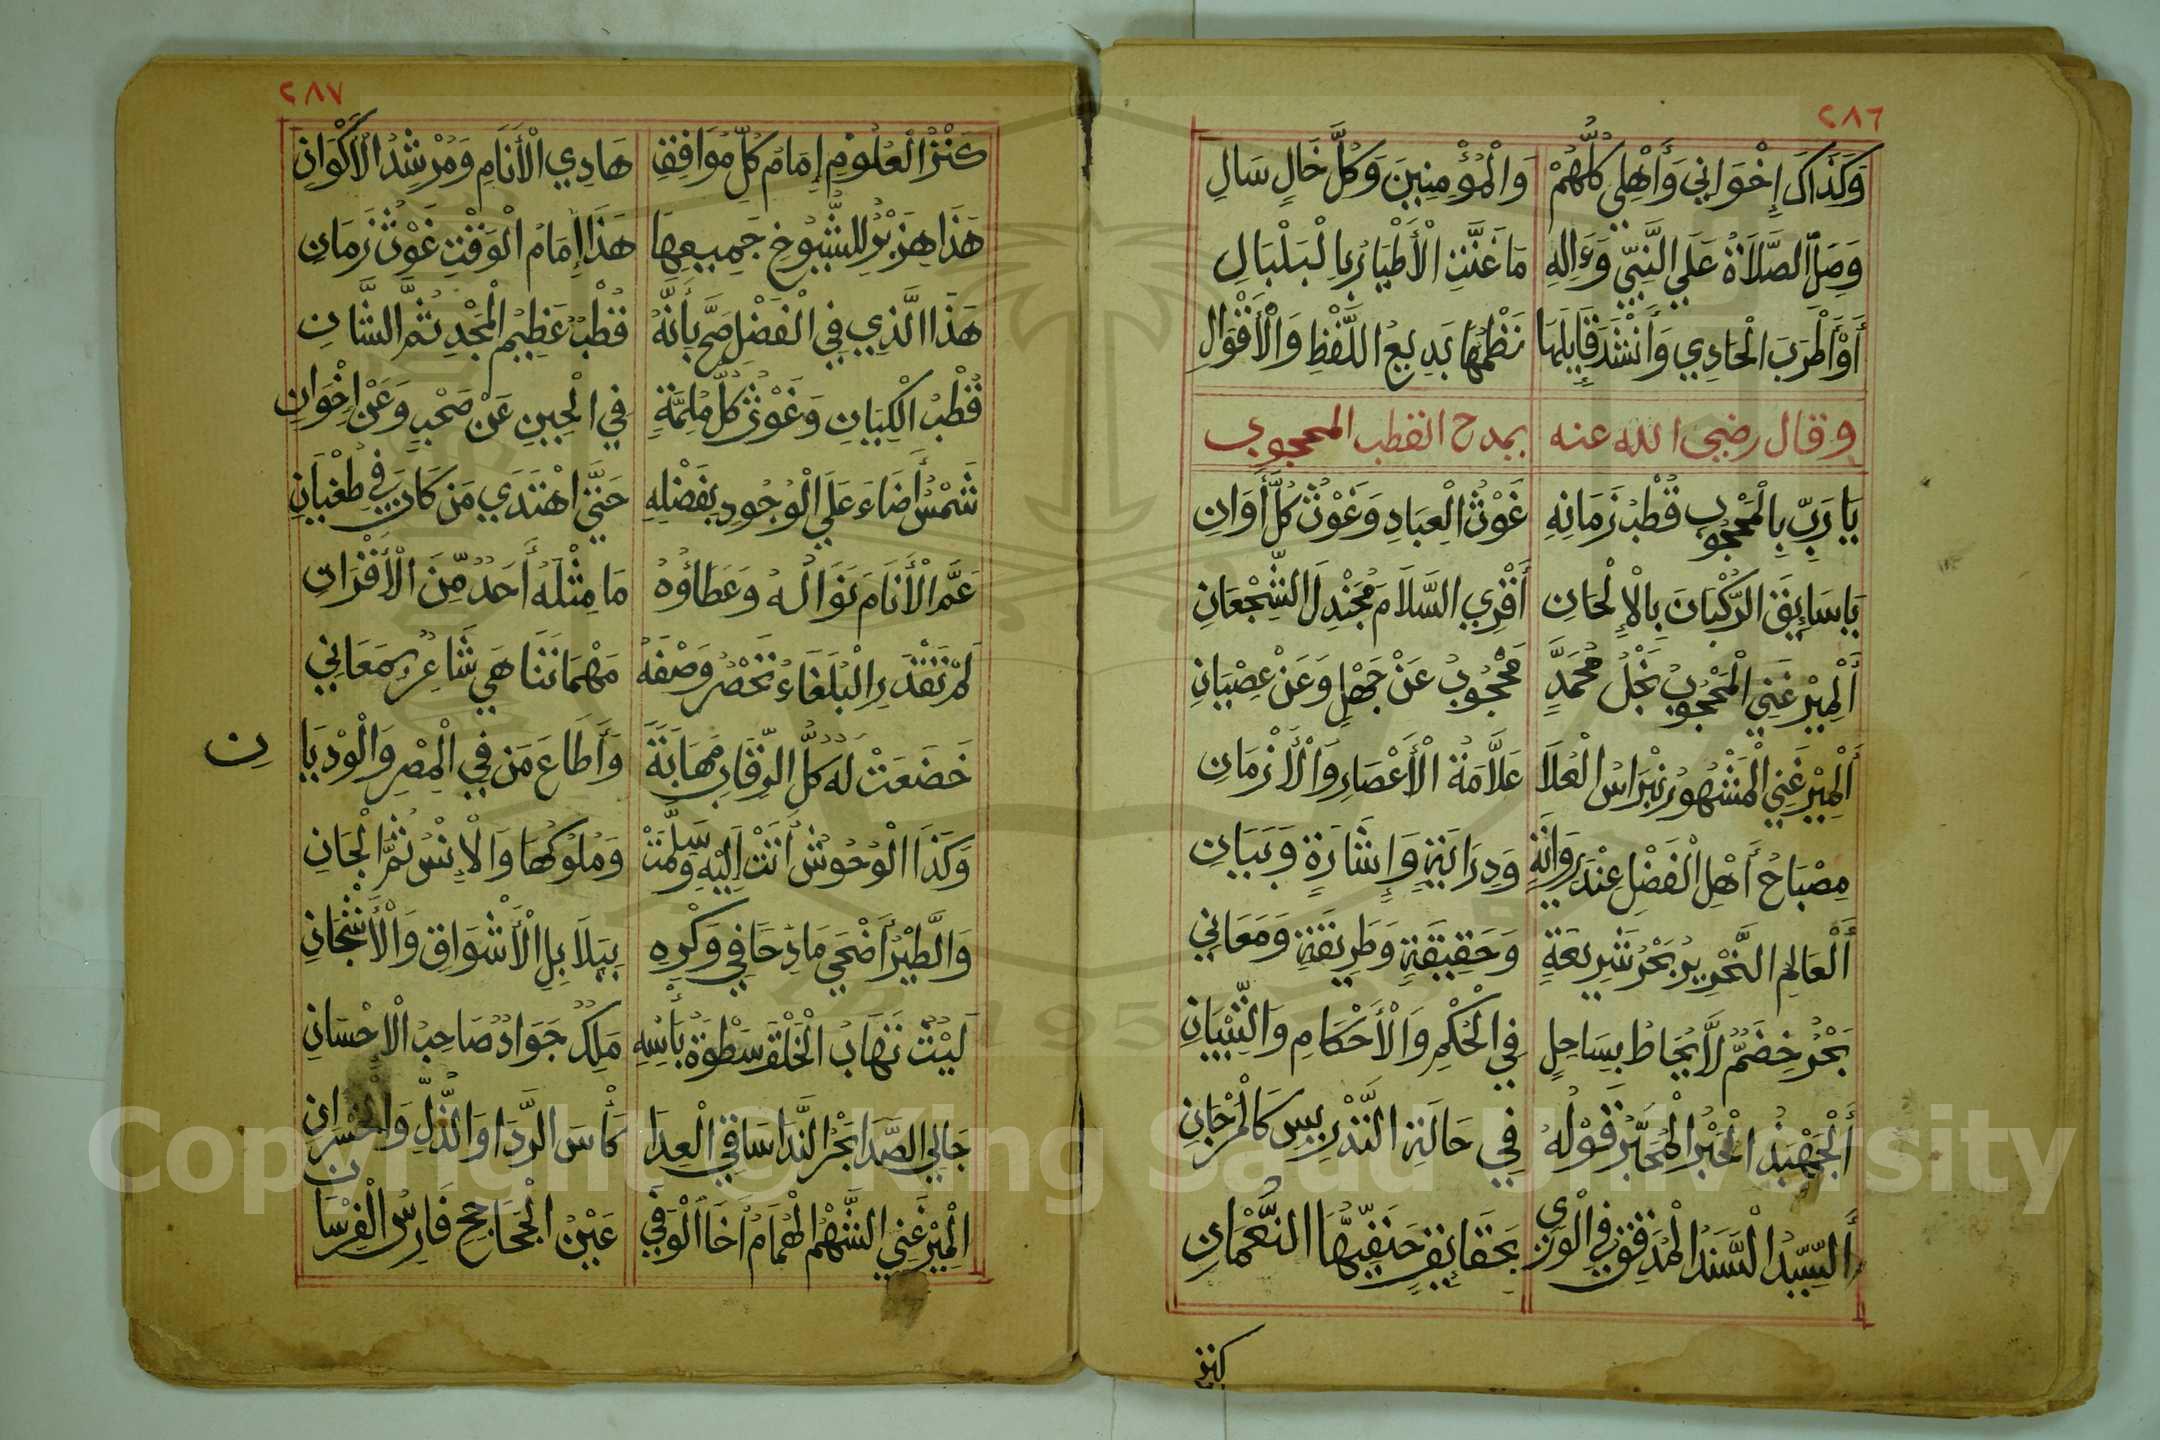 ٢٨٦
وَكَذَاكَ إِخْوَانِي وَأَهْلِي كُلُّهُمْ وَالْمُؤْمِنِينَ وَكُلَّ خَالٍ سَالِ
وَصِلِ الصَّلَاةَ عَلَى النَّبِيِّ وَءَالِهِ مَا غَنَّتِ الْأَطْيَارُ بِالْبَلْبَالِ
أَوْ أَطْرَبَ الْحَادِي وَأَنْشَدَ قَايِلَهَا نَظْمُهَا بَدِيعُ اللَّفْظِ وَالْأَقْوَالِ
وقال رضي الله عنه بمدح القطب المحجوب
يَا رَبِّ بِالْمَحْجُوبِ قُطْبُ زَمَانِهِ غَوْثُ الْعِبَادِ وَغَوْثُ كُلِّ أَوَانِ
يَا سَايِقَ الرُّكْبَانَ بِالْإِلْحَانِ أَقْرِي السَّلَامَ مُجَنْدِلَ الشِّجْعَانِ
أَلْمِيْرغَنِي الْمَحْجُوبُ نَجْلُ مُحَمَّدٍ مَحْجُوبُ عَنْ جَهْلٍ وَعَنْ عِصْيَانِ
أَلْمِيْرغَنِي الْمَشْهُورُ نِبْرَاسُ الْعُلَا عَلَّامَةُ الْأَعْصَارِ وَالْأَزْمَانِ
مِصْبَاحُ أَهْلِ الْفَضْلِ عِنْدَ رِوَايَةٍ وَدِرَايَةٍ وَإِشَارَةٍ وَبَيَانِ
أَلْعَالِمِ النَّحْرِيرُ بَحْرُ شَرِيعَةٍ وَحَقِيقَةٍ وَطَرِيقَةٍ وَمَعَانِي
بَحْرُ خِضَمٌّ لَا يُحَاطُ بِسَاحِلٍ فِي الْحُكْمِ وَالْأَحْكَامِ وَالتِّبْيَانِ
أَلْجَهْبَذُ الْحَبْرُ الْمُحَبَّرُ قَوْلُهُ فِي حَالَةِ التَّدْرِيسِ كَالْمَرْجَانِ
أَلسَّيِّدُ السَّنَدُ الْمُدَقِّقُ فِي الْوَرَى بِحَقَايِقٍ حَنَفِيُّهَا النُّعْمَانِ
كنز
٢٨٧
كَنْزُ الْعُلُومِ إِمَامُ كُلِّ مُوَافِقٍ هَادِي الْأَنَامِ وَمُرْشِدُ الْأَكْوَانِ
هَذَا هِزَبْرٌ لِلشُّيُوخِ جَمِيعِهَا هَذَا إِمَامُ الْوَقْتِ غَوْثُ زَمَانِ
هَذَا الَّذِي فِي الْفَضْلِ صَحَّ بِأَنَّهُ قُطْبُ عَظِيمُ الْمَجْدِ ثُمَّ الشَّانِ
قُطْبُ الْكِيَانِ وَغَوْثُ كُلِّ مُلِمَّةٍ فِي الْحِينِ عَنْ صَحْبٍ وَعَنْ إِخْوَانِ
شَمْسٌ أَضَاءَ عَلَى الْوُجُودِ بِفَضْلِهِ حَتَّى اهْتَدَى مَنْ كَانَ فِي طُغْيَانِ
عَمَّ الْأَنَامَ نَوَالُهُ وَعَطَاؤُهُ مَا مِثْلَهُ أَحَدٌ مِّنَ الْأَقْرَانِ
لَمْ تَقْدَرِ الْبُلَغَاءُ تَحْصُرُ وَصْفَهُ مَهْمَا تَنَاهَى شَاعِرٌ بِمَعَانِي
خَضَعَتْ لَهُ كُلُّ الرِّقَابِ مَهَابَةً وَأَطَاعَ مَن فِي الْمِصْرِ وَالْوِدْيَا ن
وَكَذَا الْوُحُوشُ أَتَتْ إِلَيْهِ وَسَلَّمَتْ وَمُلُوكُهَا وَالْإِنْسُ ثُمَّ الْجَانِ
وَالطَّيْرُ أَضْحَى مَادِحًا فِي وَكْرِهِ بِبَلَابِلِ الْأَشْوَاقِ وَالْأَشْجَانِ
لَيْثٌ تَهَابُ الْخَلْقَ سَطْوَةَ بَأْسِهِ مَلِكٌ جَوَادٌ صَاحِبُ الْإِحْسَانِ
جَالِي الصَّدَا بَحْرُ النَّدَا سَاقِي الْعِدَا كَأْسَ الرَّدَا وَالذُّلِّ وَالْخُسْرَانِ
الْمِيْرغَنِي الشَّهْمُ الْهُمَامُ أَخَا الْوَفِي عَيْنُ الْجَحَاجِحِ فَارِسُ الْفِرْسَا ن
Copyright © King Saud University